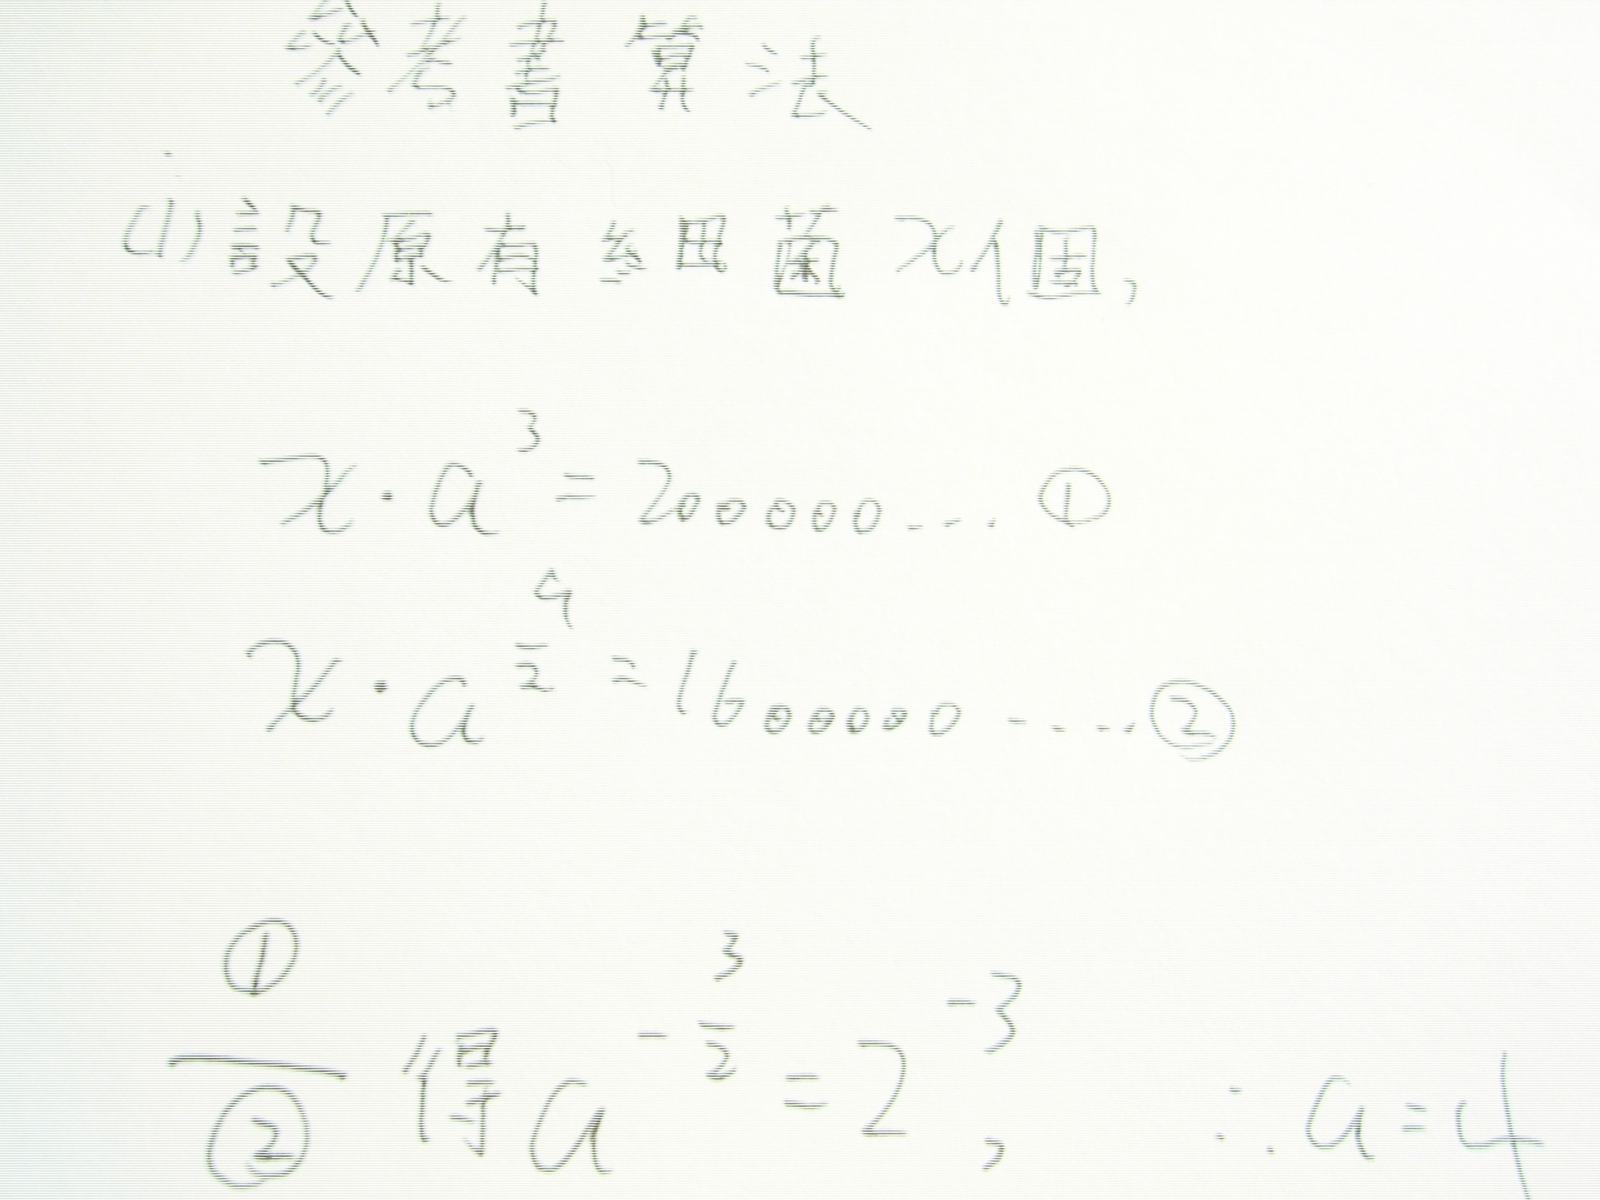 參考書算法
(1)設原有細菌x個,
x·a^3=200000...①
x·a^(9/2)=1600000.....②
①/② 得a^(-3/2)=2^(-3), ∴a=4